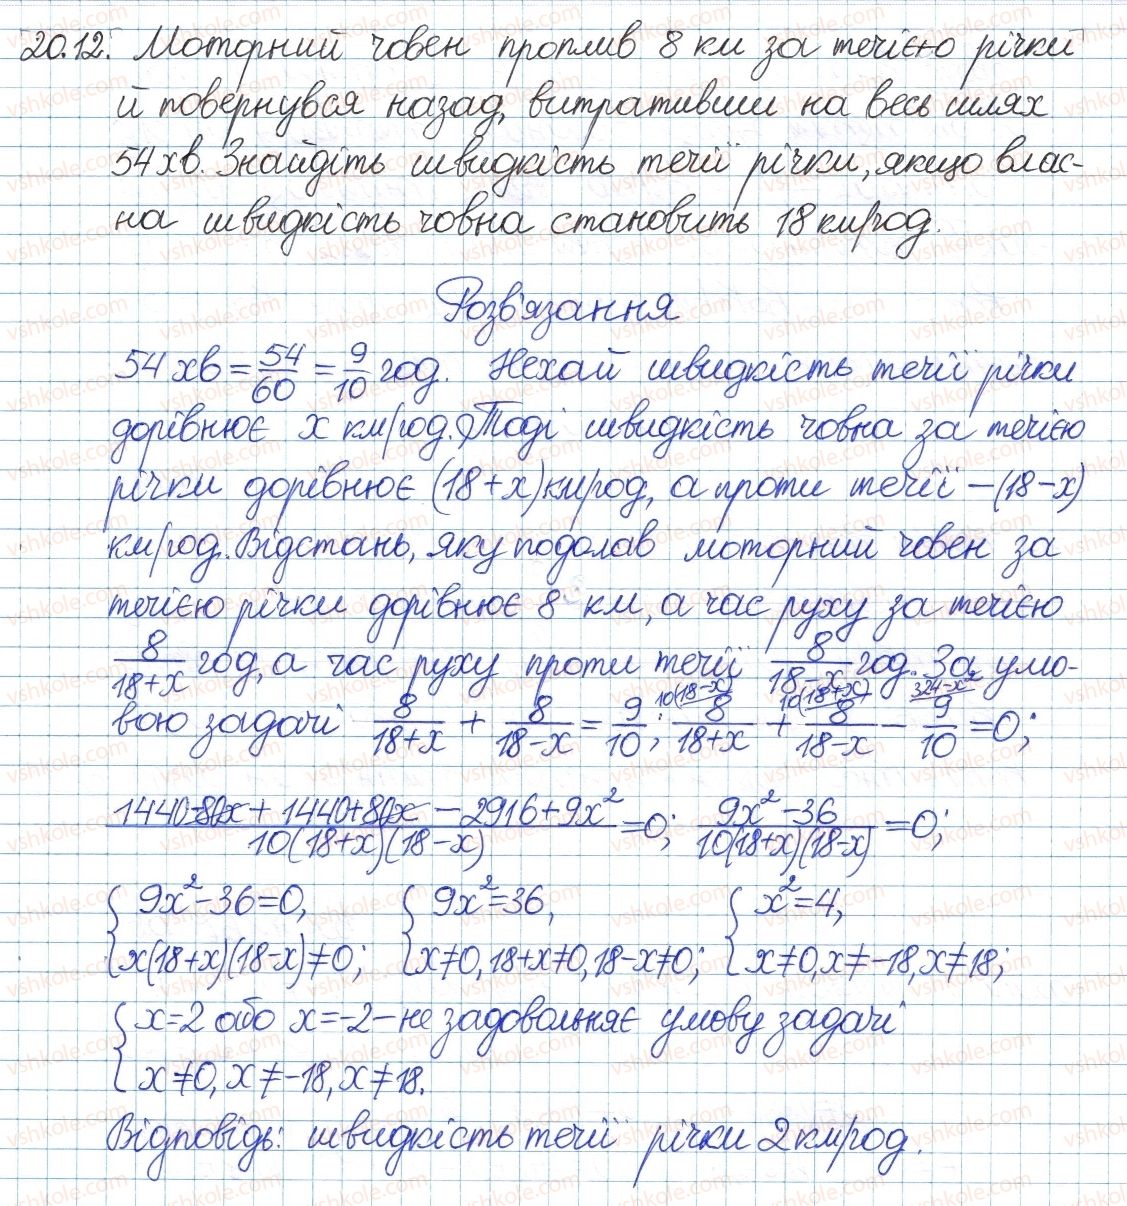 20.12. Моторний човен проплив 8 км за течією річки
й повернувся назад, витративши на весь шлях
54 хв. Знайдіть швидкість течії річки, якщо влас-
на швидкість човна становить 18 км/год.
Розв'язання
54 хв = 54/60 = 9/10 год. Нехай швидкість течії річки
дорівнює x км/год. Тоді швидкість човна за течією
річки дорівнює (18+x) км/год, а проти течії – (18-x)
км/год. Відстань, яку подолав моторний човен за
течією річки дорівнює 8 км, а час руху за течією
8/(18+x) год, а час руху проти течії 8/(18-x) год. За умо-
10(18-x) 10(18+x) 324-x²
вою задачі 8/(18+x) + 8/(18-x) = 9/10; 8/(18+x) + 8/(18-x) - 9/10 = 0;
(1440-80x+1440+80x-2916+9x²)/(10(18+x)(18-x)) = 0; (9x²-36)/(10(18+x)(18-x)) = 0;
{ 9x²-36=0, { 9x²=36, { x²=4,
x(18+x)(18-x)≠0; x≠0, 18+x≠0, 18-x≠0; x≠0, x≠-18, x≠18;
{ x=2 або x=-2 – не задовольняє умову задачі
x≠0, x≠-18, x≠18.
Відповідь: швидкість течії річки 2 км/год.